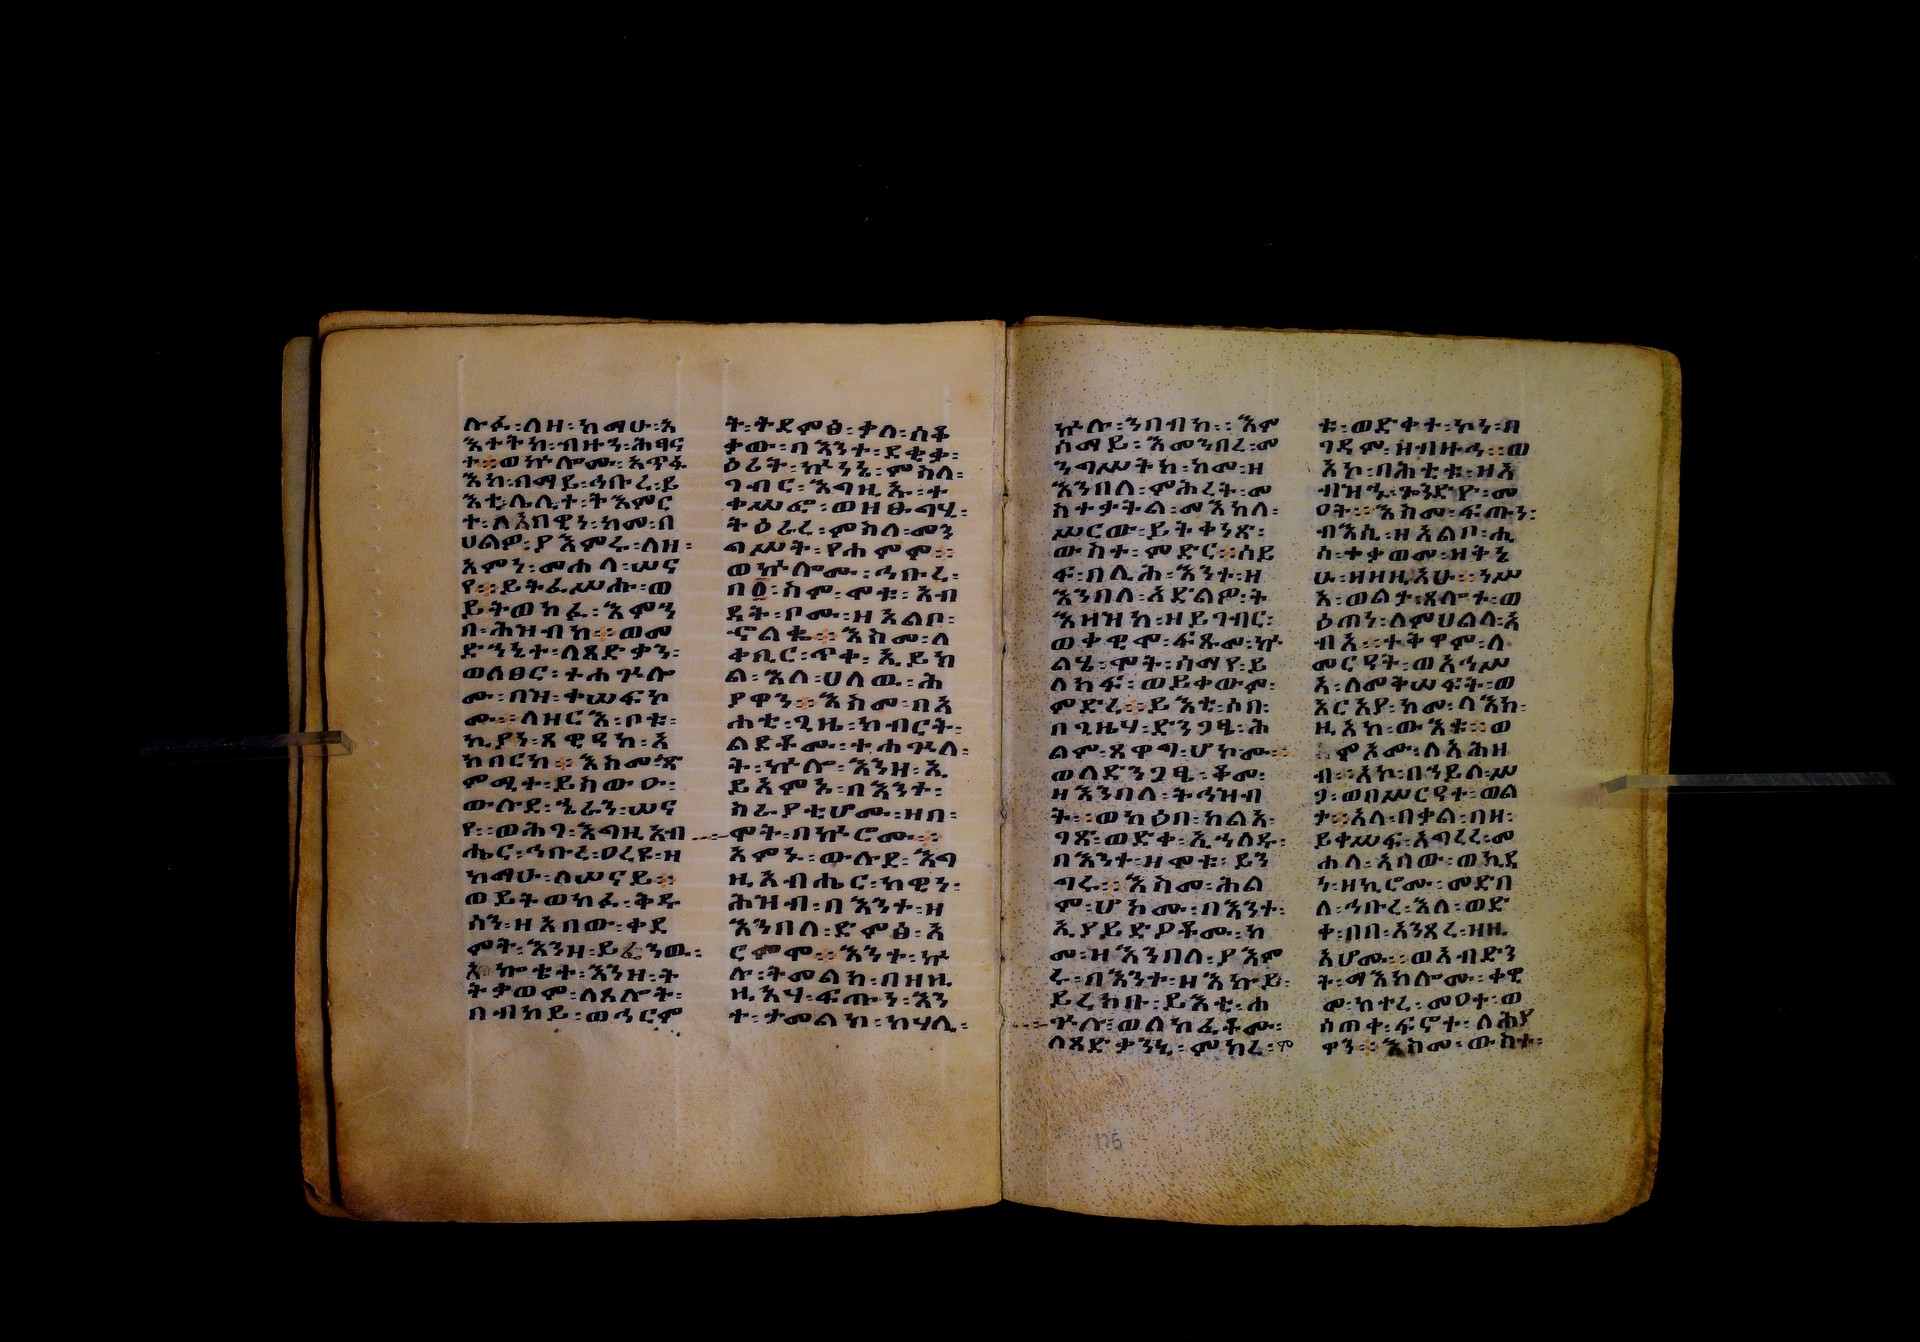 ሉፊ፡ለዘ፡ከማሁ፡አ
እተትከ፡ብዙኅ፡ሕፃና
ት፡፡ወኵሎሙ፡አጥፋ
እከ፡በማይ፡ኅቡረ፡ይ
እቲ፡ሌሊተ፡ትእምር
ተ፡ለአበዊነ፡ከመ፡በ
ሀልዎ፡ያእምሩ፡ለዘ፡
አምኑ፡መሐላ፡ሠና
የ፡፡ይትፌሥሑ፡ወ
ይትወከፈ፡እምን
በ፡ሕዝብከ፡፡ወመ
ድኀኒተ፡ለጻድቃን፡
ወለፀር፡ተሐጕሎ
ሙ፡በዝ፡ቀሠፍኮ
ሙ፡፡ለዘርእ፡ቦቱ፡
ኪያነ፡ጸዊዓከ፡አ
ክበርከ፡፡እስመ፡ጽ
ምሚተ፡ይሠውዑ፡
ውሉደ፡ኄራን፡ሠና
የ፡፡ወሕገ፡እግዚአብ
ሔር፡ኅቡረ፡ዐረዩ፡ዘ
ከማሁ፡ለሠናይ፡፡
ወይትወከፈ፡ቅዱ
ሳን፡ዘአበው፡ቀደ
ሙት፡እንዘ፡ይፌንዉ፡
አኰቴተ፡እንዘ፡ት
ትቃወም፡ለጸሎት፡
በብከይ፡ወኅርም
ት፡ትደምፅ፡ቃለ፡ሰቆ
ቃው፡በእንተ፡ደቂቃ፡
ዕሪት፡ኵነኔ፡ምስለ፡
ገብር፡እግዚኡ፡ተ
ቀሥፎ፡ወዘፁግሂ፡
ትዕሪረ፡ምስለ፡መን
ግሥት፡የሐምም፡፡
ወኵሎሙ፡ኅቡረ፡
በ፩፡ስም፡ሞቱ፡አብ
ዳት፡ቦሙ፡ዘአልቦ፡
ኍልቈ፡፡እስመ፡ለ
ቀቢር፡ጥቀ፡ኢይክ
ል፡እለ፡ሀለዉ፡ሕ
ያዋን፡፡እስመ፡በአ
ሐቲ፡ጊዜ፡ክብርት፡
ልደቶሙ፡ተሐጕለ፡
ት፡ኵሎ፡እንዘ፡ኢ
ይአምኑ፡በእንተ፡
ሥራያቲሆሙ፡ዘበ፡
ሞት፡በኵሮሙ፡፡
አምኑ፡ውሉደ፡እግ
ዚአብሔር፡ከዊነ፡
ሕዝብ፡በእንተ፡ዘ
እንበለ፡ድምፅ፡አ
ርምሞ፡፡እንተ፡ኵ
ሉ፡ትመልክ፡በዘዚ
ዚአሃ፡ፍጡነ፡እን
ተ፡ታመልክ፡ከሃሊ፡
ኵሉ፡ንበብከ፡፡እም
ሰማይ፡እመንበረ፡መ
ንግሥትከ፡ከመ፡ዘ
እንበለ፡ምሕረት፡መ
ስተቃትል፡መእከለ፡
ሥርው፡ይትቀንጽ፡
ውስተ፡ምድር፡፡ሰይ
ፍ፡በሊሕ፡እንተ፡ዘ
እንበለ፡አድልዎ፡ት
እዛዝከ፡ዘይገብር፡
ወቀዊሞ፡ፍጹመ፡ኵ
ልሄ፡ሞት፡ሰማየ፡ይ
ለክፍ፡ወይቀውም፡
ምድረ፡፡ይእቲ፡ሰበ፡
በጊዜሃ፡ድንጋፄ፡ሕ
ልም፡ጸዋግ፡ሆከሙ፡፡
ወለድንጋፄ፡ቆመ፡
ዘእንበለ፡ትኅዝብ
ት፡፡ወካዕበ፡ከልእ፡
ገጽ፡ወድቀ፡ኢኅለዱ፡
በእንተ፡ዘሞቱ፡ይን
ግሩ፡፡እስመ፡ሕል
ም፡ሆከሙ፡በእንተ፡
ኢያይድዖቶሙ፡ከ
መ፡ዝእንበለ፡ያእም
ሩ፡በእንተ፡ዘእኩይ፡
ይረከቡ፡ይእቲ፡ሐ
ጕሉ፡ወለከፈቶሙ፡
ለጻድቃንኒ፡ምክረ፡ሞ
ቱ፡ወድቀተ፡ኮነ፡በ
ገዳም፡ዘብዙኅ፡፡ወ
አኮ፡በሕቲቱ፡ዘአ
ብዝኀ፡ጕንድዮ፡መ
ዐት፡፡እስመ፡ፍጡነ፡
ብእሲ፡ዘአልቦ፡ሒ
ስ፡ተቃወመ፡ዘትኄ
ሁ፡ዘዘዚአሁ፡፡ንሥ
አ፡ወልታ፡ጸሎተ፡ወ
ዕጠነ፡ለምህልላ፡አ
ብአ፡፡ተቅዋም፡ለ
መርዓት፡ወአኅሥ
አ፡ለመቅሠፍት፡ወ
አርአየ፡ከመ፡ላእክ፡
ዚአከ፡ውእቱ፡፡ወ
ሞአሙ፡ለአሕዘ
ብ፡፡አኮ፡በኀይለ፡ሥ
ጋ፡ወበሥርዓተ፡ወል
ታ፡፡አላ፡በቃል፡በዘ፡
ይቀሥፍ፡አግረረ፡መ
ሐላ፡አበው፡ወኪዳ
ነ፡ዘኪሮሙ፡መድበ
ለ፡ኅቡረ፡እለ፡ወድ
ቀ፡በበ፡አንጻረ፡ዘዚ
አሆሙ፡፡ወአብድን
ት፡ማእከሎሙ፡ቀዊ
ሞ፡ከተረ፡መዐተ፡ወ
ሰጠቀ፡ፍኖተ፡ለሕያ
ዋን፡፡እስመ፡ውስተ፡